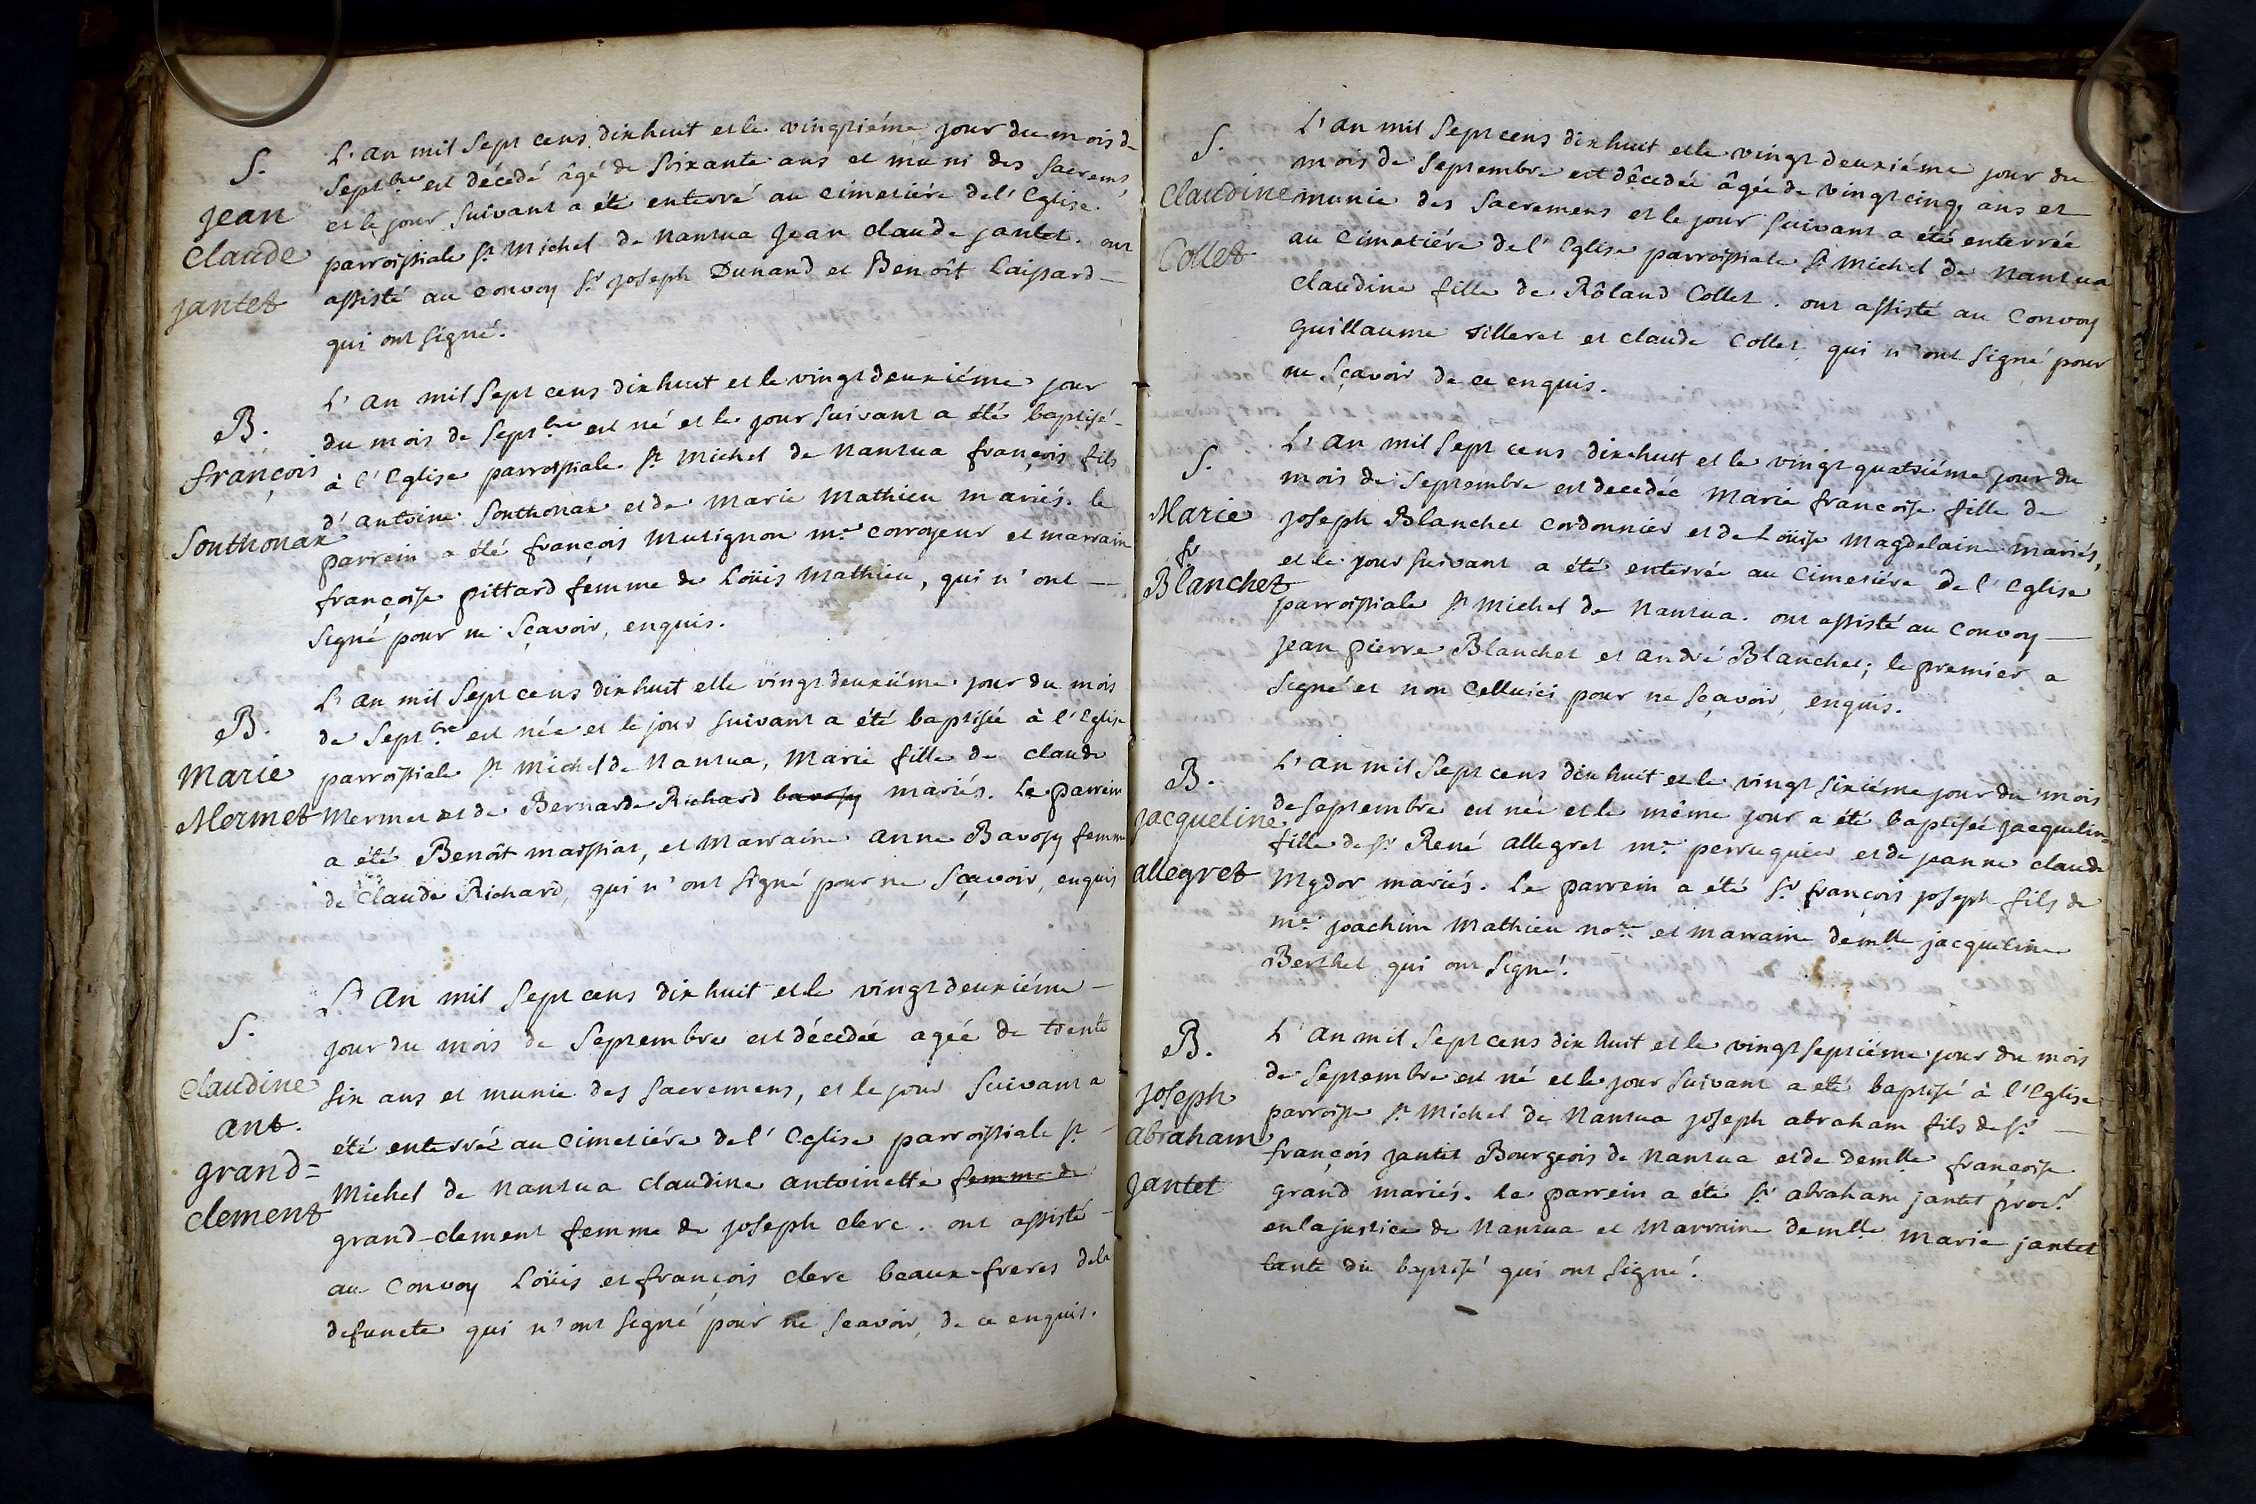 S.
Jean
Claude
jantet
L'an mil Sept cens dix huit et le vingtiéme jour du mois de
Septbre est décedé âgé de Soixante ans et muni des Sacremens,
et le jour suivant a été enterré au cimetiére de l'Eglise
parroissiale St Michel de Nantua Jean claude jantet. ont
assisté au convoy Sr joseph Dunand et Benoît Laissard —
qui ont signé.
B.
françois
Southonax
L'an mil Sept cens dix huit et le vingt deuxiéme jour
du mois de Septbre est né et le jour suivant a été baptisé
à l'Eglise parroissiale St Michel de Nantua françois fils
d'antoine Southonax et de Marie Mathieu mariés. le
parrein a été françois Mutignon me corroyeur et marraine
françoise pittard femme de Loüis Mathieu, qui n'ont —
signé pour ne sçavoir, enquis.
B.
Marie
Mermet
L'an mil Sept cens dix huit et le vingt deuxiéme jour du mois
de Septbre est née et le jour suivant a été baptisée à l'Eglise
parroissiale St Michel de Nantua, Marie fille de claude
Mermet et de Bernarde Richard bavosy mariés. Le parrein
a été Benoît massiat, et Marraine anne Bavosy femme
de Claude Richard, qui n'ont signé pour ne Sçavoir, enquis
S.
Claudine
ant.
grand=
clement
L'an mil Sept cens dix huit et le vingt deuxiéme —
jour du mois de Septembre est décedée agée de trente
six ans et munie des Sacremens, et le jour suivant a
été enterrée au cimetiére de l'Eglise parroissiale St
Michel de Nantua claudine antoinette femme de
grand-clement femme de joseph clerc. ont assisté
au convoy Loüis et françois clerc beaux-freres de la
defuncte qui n'ont signé pour ne scavoir, de ce enquis.
S.
Claudine
Collet
L'an mil Sept cens dix huit et le vingt deuxiéme jour du
mois de Septembre est décedée âgée de vingt cinq ans et
munie des Sacremens et le jour suivant a été enterrée
au cimetiére de l'Eglise parroissiale St Michel de Nantua
claudine fille de Rôland Collet. ont assisté au convoy
guillaume Silleret et claude Collet qui n'ont signé pour
ne sçavoir de ce enquis.
S.
Marie
fr
Blanchet
L'an mil Sept cens dix huit et le vingt quatriéme jour du
mois de Septembre est decedée Marie françoise fille de
joseph Blanchet cordonnier et de Loüise Magdelaine mariés,
et le jour suivant a été enterrée au cimetiére de l'Eglise
parroissiale St Michel de Nantua. ont assisté au convoy —
jean pierre Blanchet et andré Blanchet; le premier a
signé et non celluici pour ne sçavoir, enquis.
B.
jacqueline
allegret
L'an mil Sept cens dix huit et le vingt sixiéme jour du mois
de septembre est née et le même jour a été baptisée jacqueline
fille de Sr René allegret me perruquier et de jeanne claude
Mydor mariés. Le parrein a été Sr françois joseph fils de
me joachim Mathieu nore et marraine demlle jacqueline
Berthet qui ont signé.
B.
joseph
abraham
jantet
L'an mil Sept cens dix huit et le vingt septiéme jour du mois
de Septembre est né et le jour suivant a été baptisé à l'Eglise
parroisse St Michel de Nantua joseph abraham fils de Sr —
françois jantet Bourgeois de Nantua et de demlle françoise
grand mariés. le parrein a été Sr abraham jantet procr
en la justice de Nantua et Marraine demlle marie jantet
tante du baptisé qui ont signé.